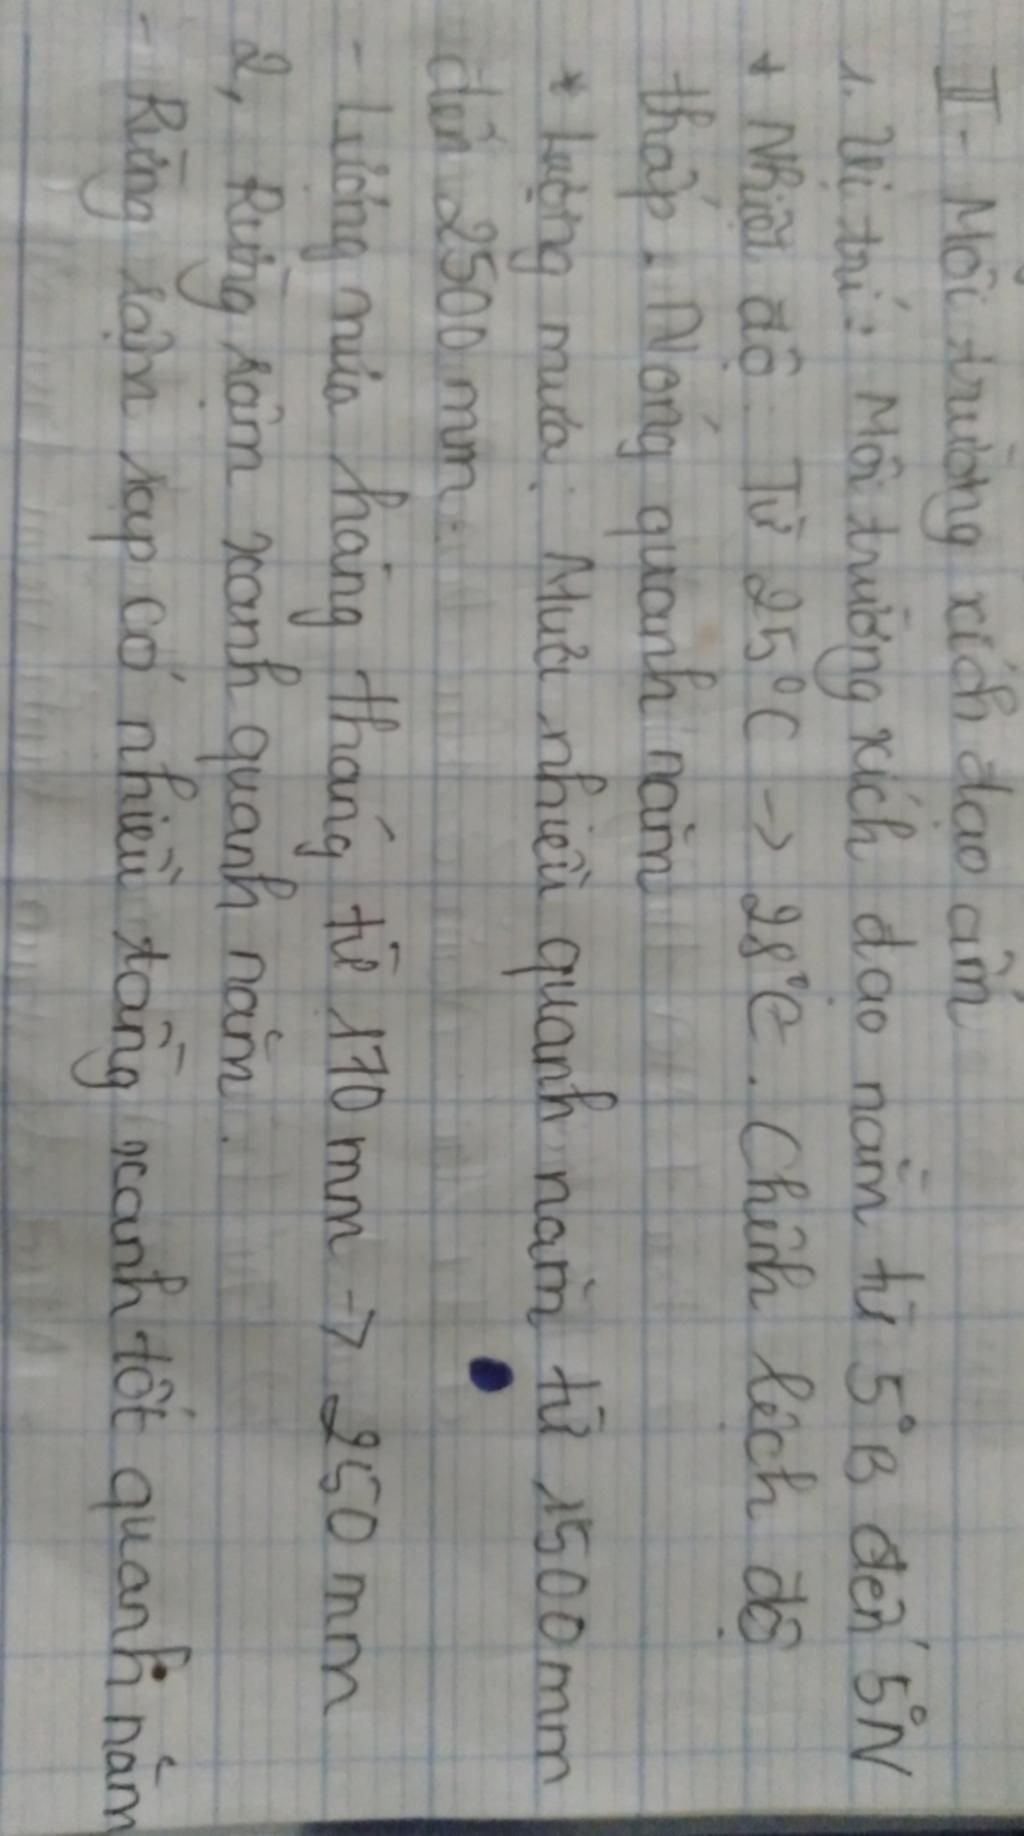 II - Môi trường xích đạo ẩm
1. Vị trí: Môi trường xích đạo nằm từ 5°B đến 5°N
+ Nhiệt độ: Từ 25°C -> 28°C. Chênh lệch độ
thấp. Nóng quanh năm
* Lượng mưa: Mưa nhiều quanh năm từ 1500mm
đến 2500mm.
- Lượng mưa hàng tháng từ 170 mm -> 250 mm
2, Rừng rậm xanh quanh năm.
- Rừng rậm rạp có nhiều tầng xanh tốt quanh năm